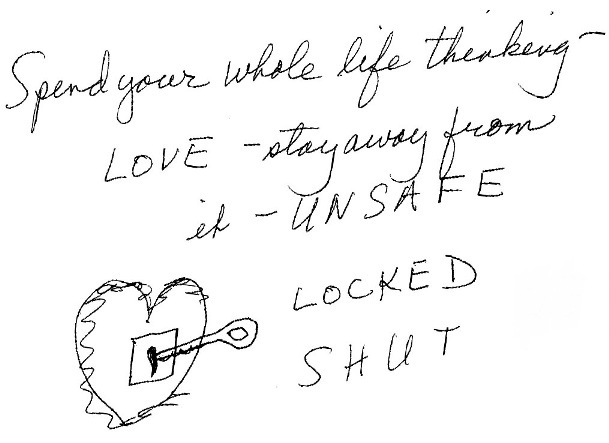 Spend your whole life thinking—
LOVE - stay away from
it - UNSAFE
LOCKED
SHUT